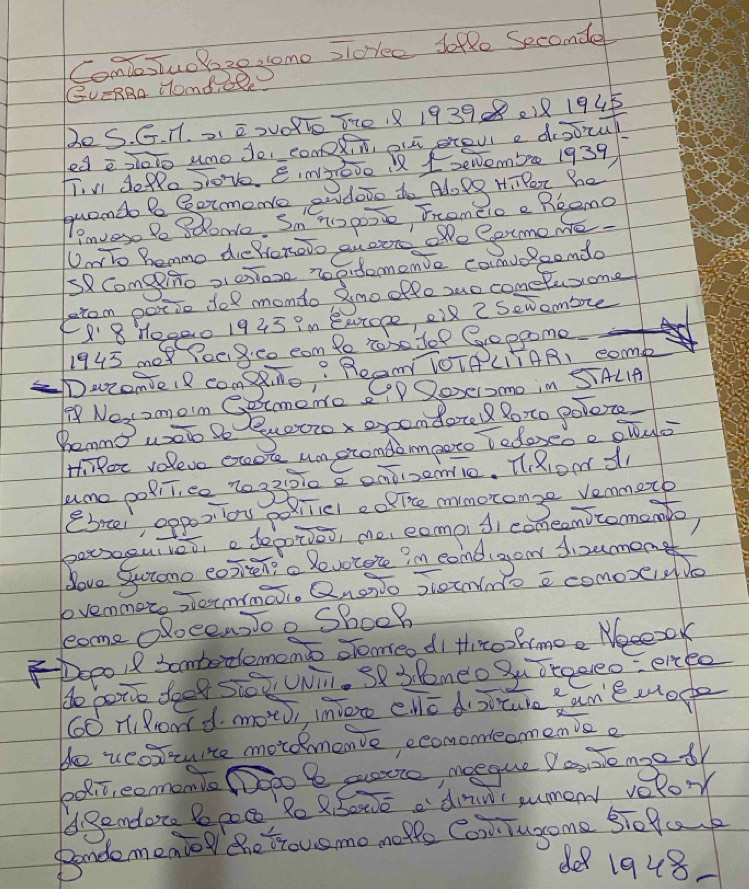 Contestualizzazione storica della Seconda
GUERRA Mondiale.
La S.G.M. si è svolta tra il 1939 e il 1945
ed è stato uno dei conflitti più gravi e distrut-
tivi della storia. È iniziata il 1 settembre 1939,
quando la Germania, guidata da Adolf Hitler ha
invaso la Polonia. In risposta, Francia e Regno
Unito hanno dichiarato guerra alla Germania-
Il conflitto si estese rapidamente coinvolgendo
gran parte del mondo fino alla sua conclusione
l'8 Maggio 1945 in Europa, e il 2 Settembre
1945 nel Pacifico con la resa del Giappone-
Durante il conflitto, i Regimi TOTALITARI come
il Nazismo in Germania e il fascismo in ITALIA
hanno usato la guerra x espandere il loro potere-
Hitler voleva creare un grande impero Tedesco e attuò
una politica razzista e antisemita. Milioni di
Ebrei, oppositori politici e altre minoranze vennero
perseguitati e deportati nei campi di concentramento,
dove furono costretti a lavorare in condizioni disumane
o vennero sterminati. Questo sterminio è conosciuto
come Olocausto o Shoah
Dopo il bombardamento atomico di Hiroshima e
da parte degli Stati UNITI. Il bilancio fu tragico: circa
60 Milioni di morti, intere città distrutte e un'Europa
da ricostruire moralmente, economicamente e
politicamente. Dopo la guerra, nacque l'esistenza di
difendere la pace la libertà e i diritti umani valori
fondamentali che troviamo nella Costituzione Italiana
del 1948-